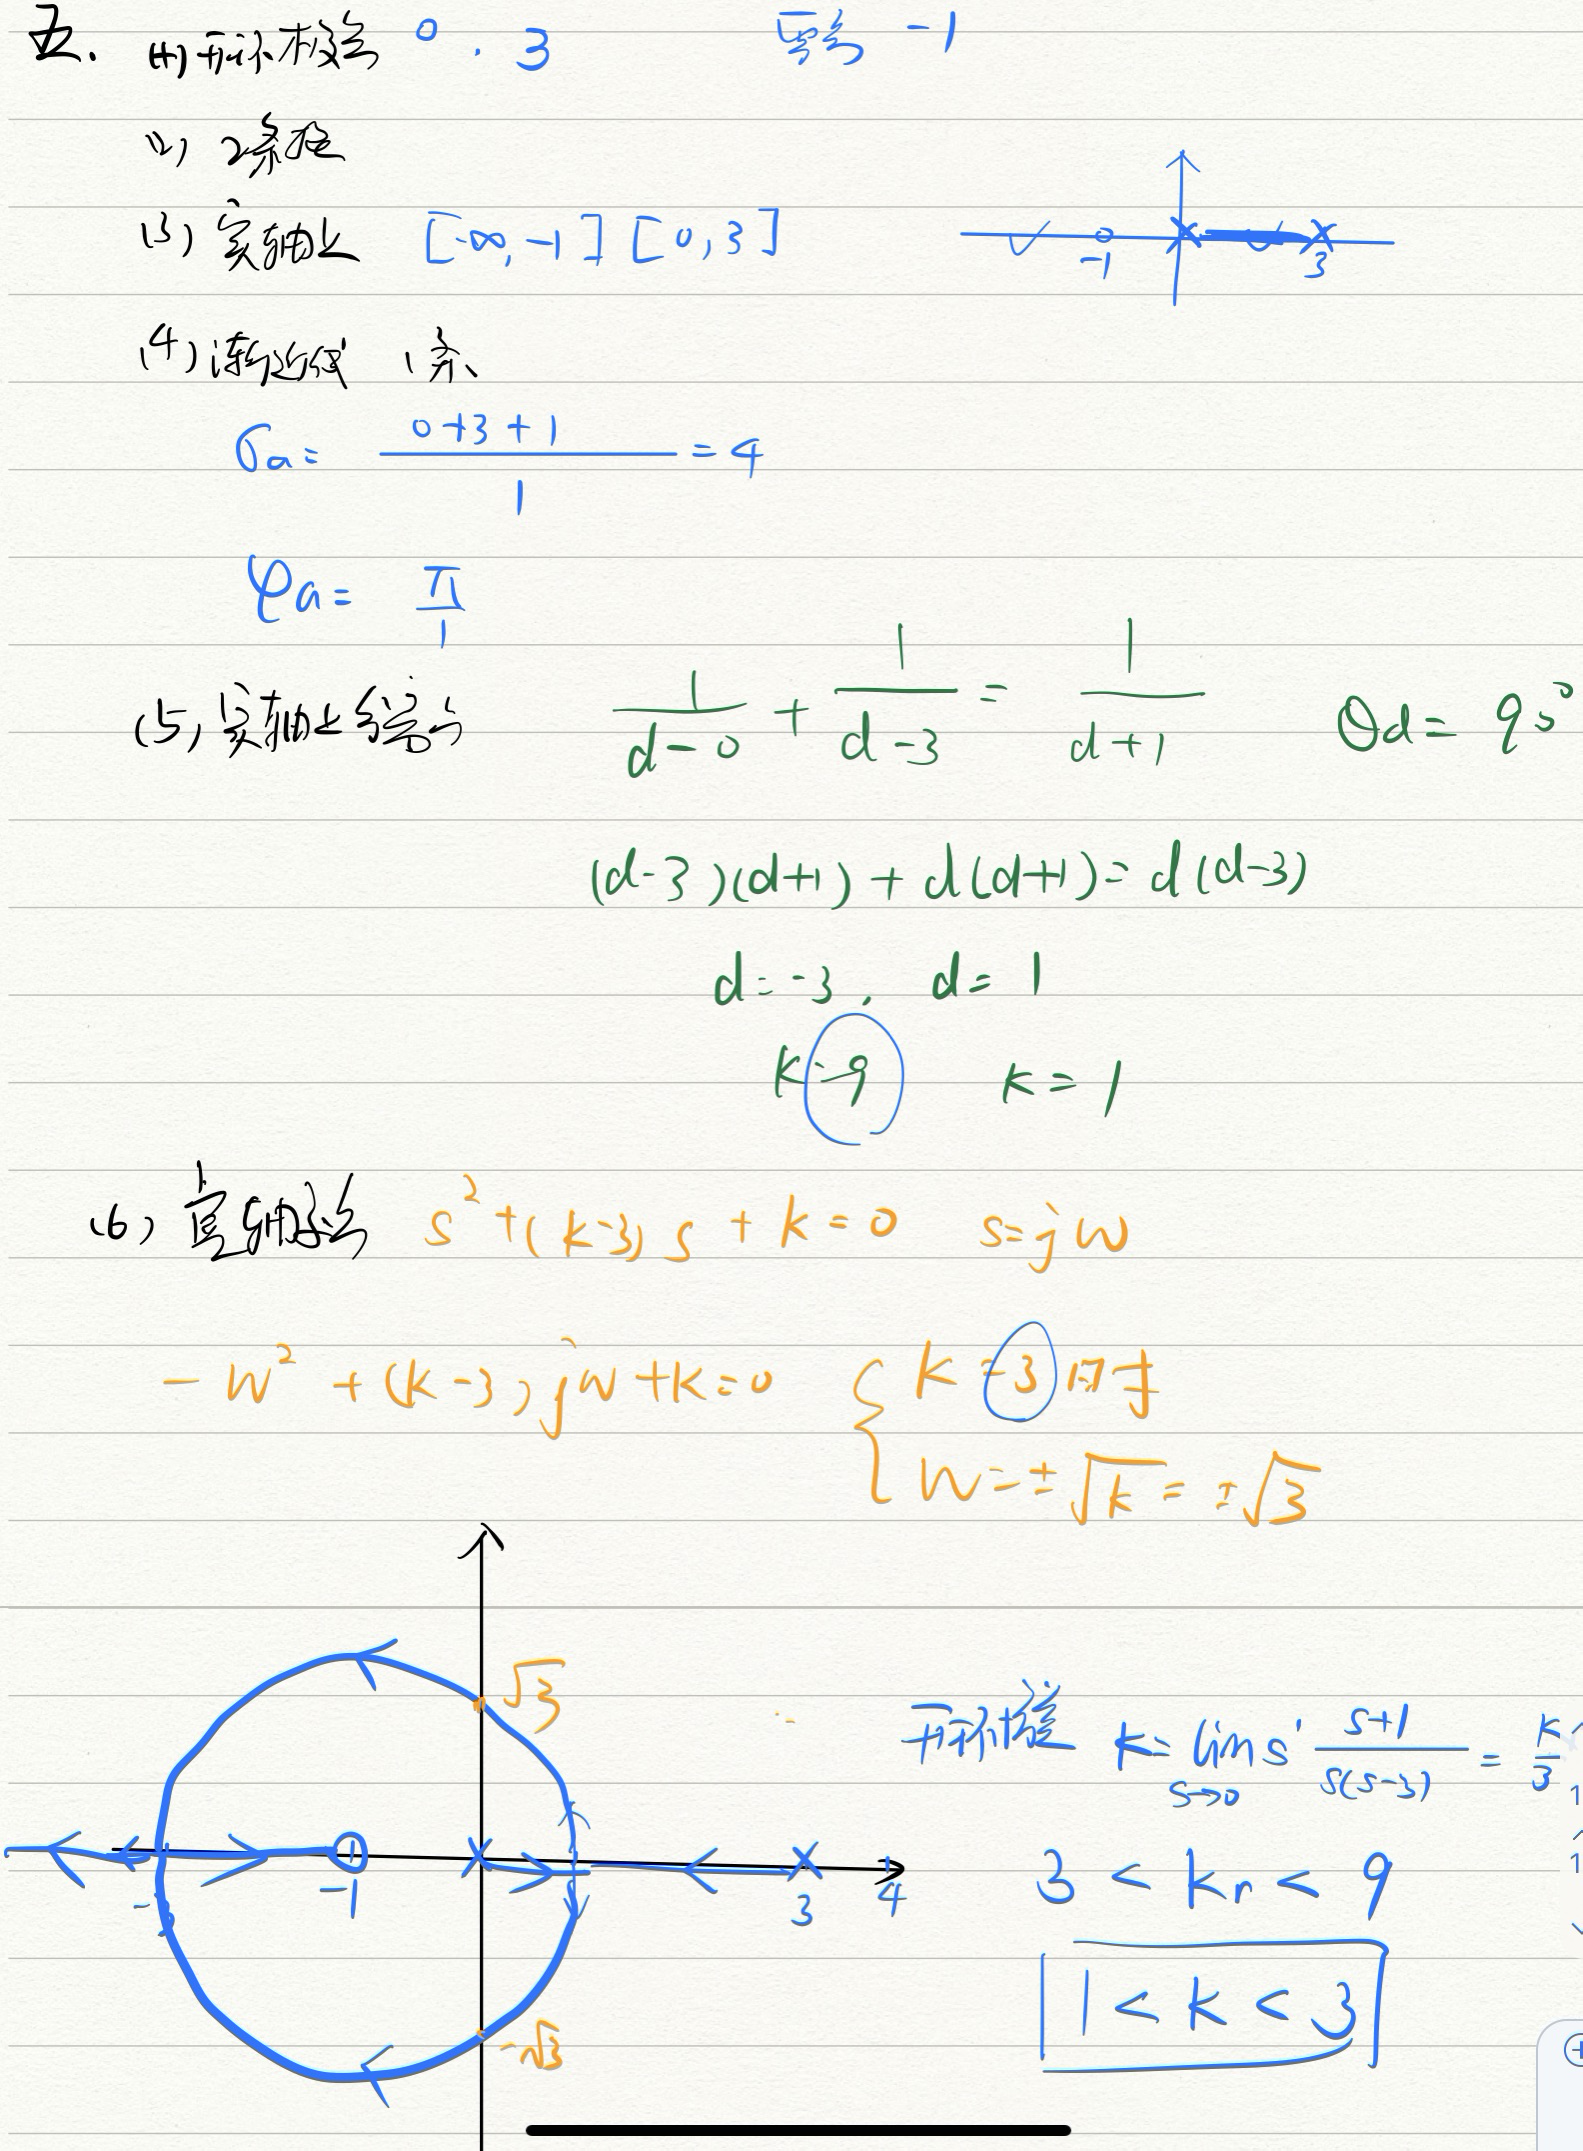 五. (1) 开环极点 0 . 3 零点 -1
(2) 2条
(3) 实轴上 [-∞, -1] [0, 3]
-1 3
(4) 渐近线 1条
σa = (0+3+1)/1 = 4
φa = π/1
(5) 实轴上分离点 1/(d-0) + 1/(d-3) = 1/(d+1) θd = 90°
(d-3)(d+1) + d(d+1) = d(d-3)
d = -3 , d = 1
k = 9 k = 1
(6) 虚轴交点 s² + (k-3)s + k = 0 s = jw
-w² + (k-3)jw + k = 0 { k = 3 时
w = ±√k = ±√3
√3
开环增益 k = lim s→0 s' (s+1)/(s(s-3)) = k/3
-3 -1 3 4
3 < kr < 9
1 < k < 3
-√3